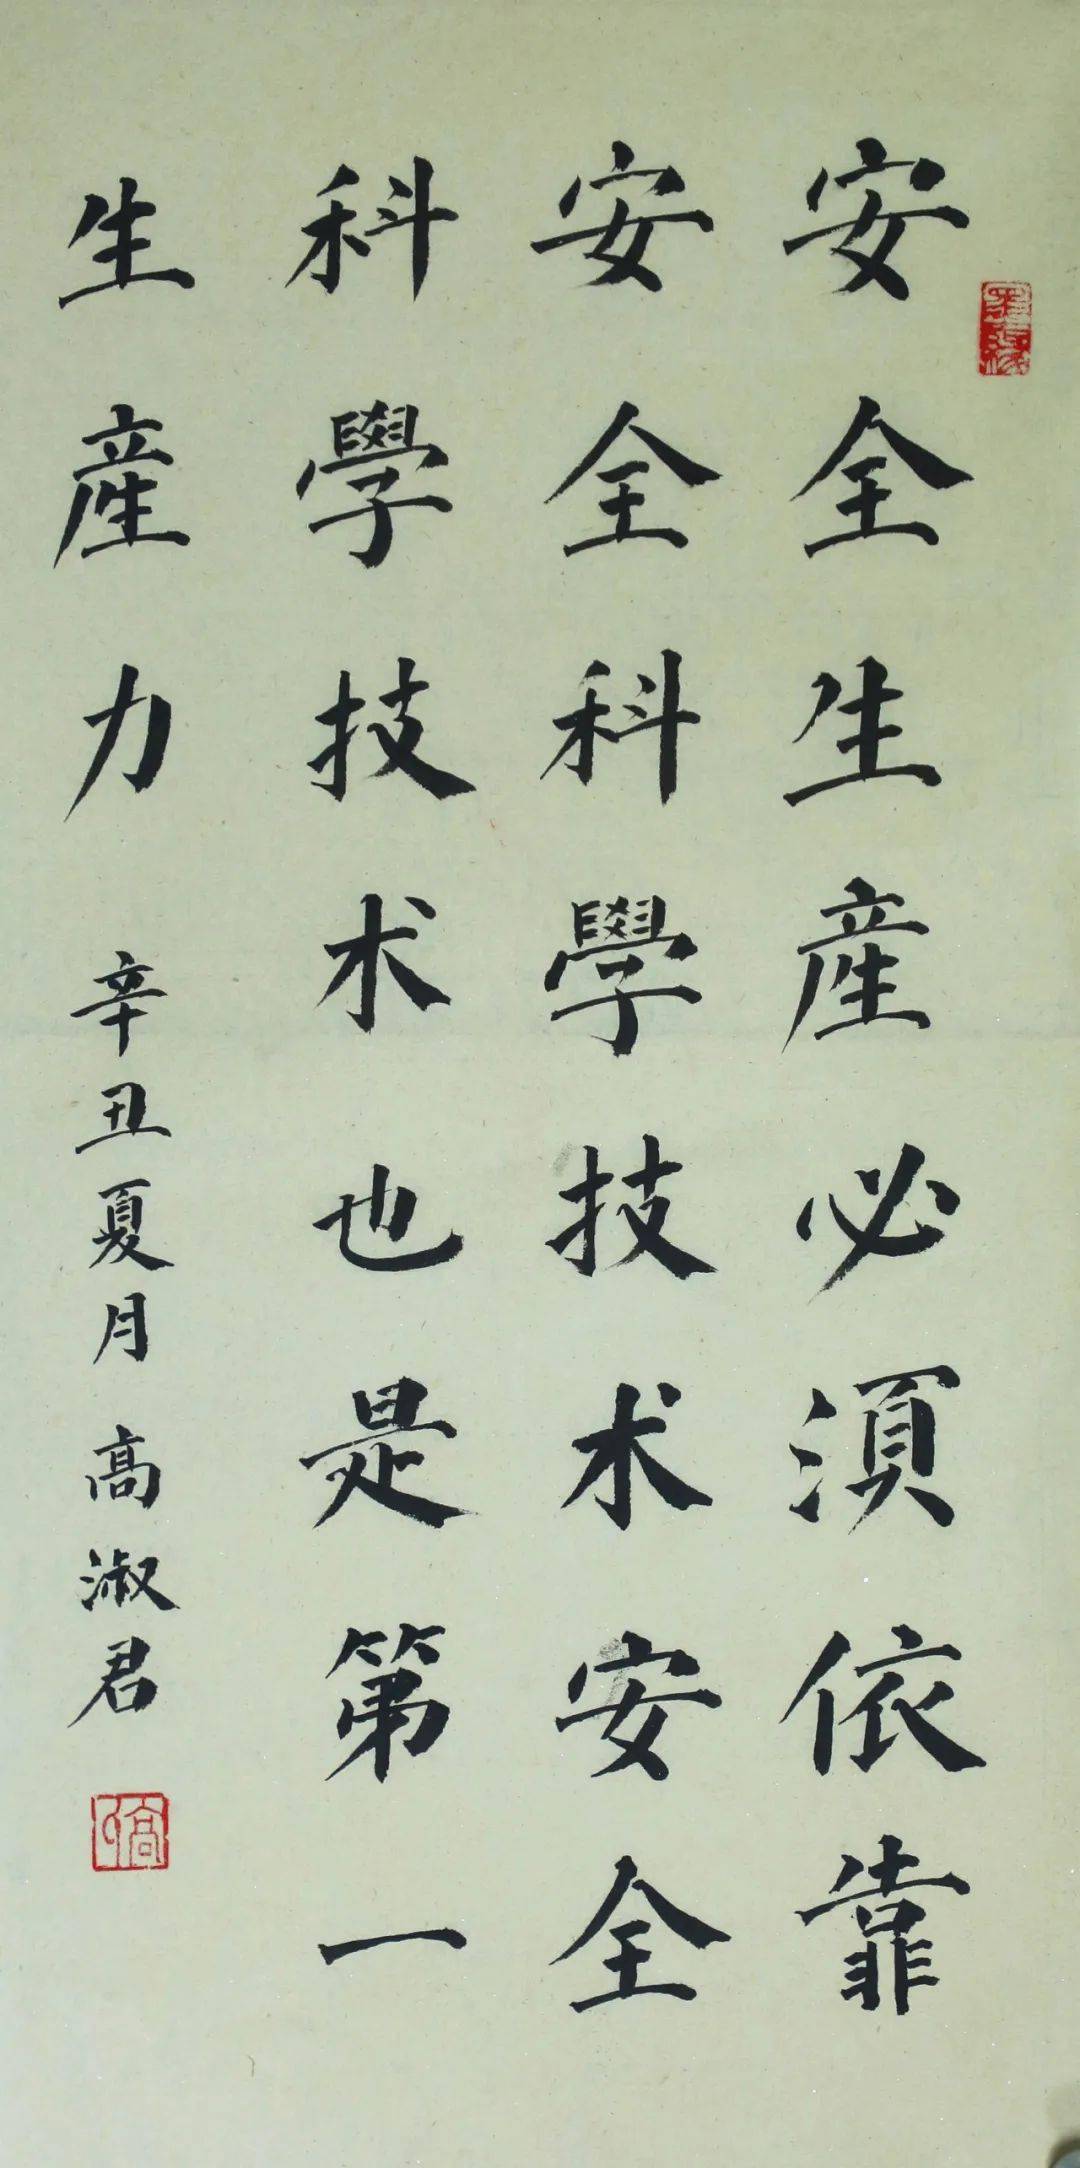 安全生產必須依靠
安全科學技术安全
科學技术也是第一
生產力
辛丑夏月高淑君